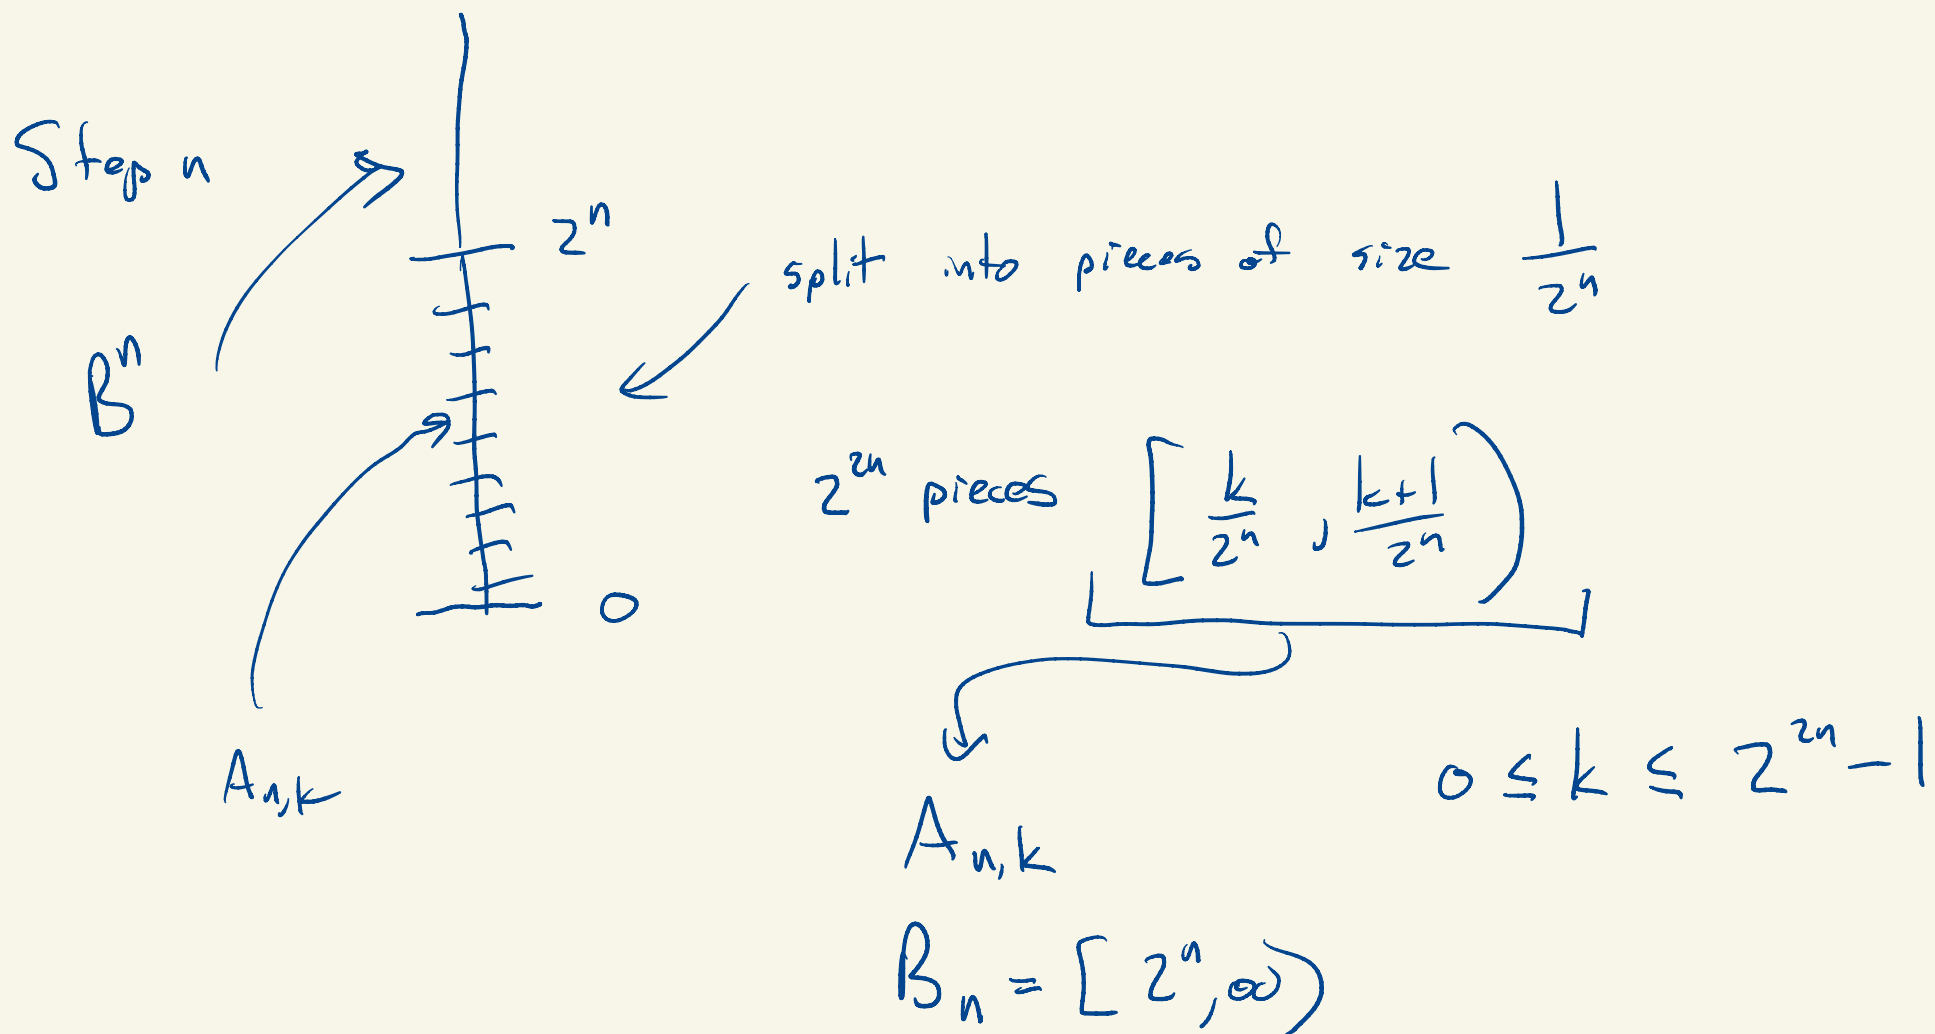 Step n
2^n
split into pieces of size 1/2^n
B^n
2^{2n} pieces [k/2^n, (k+1)/2^n)
0
A_{n,k}
0 ≤ k ≤ 2^{2n} - 1
A_{n,k}
B_n = [2^n, ∞)